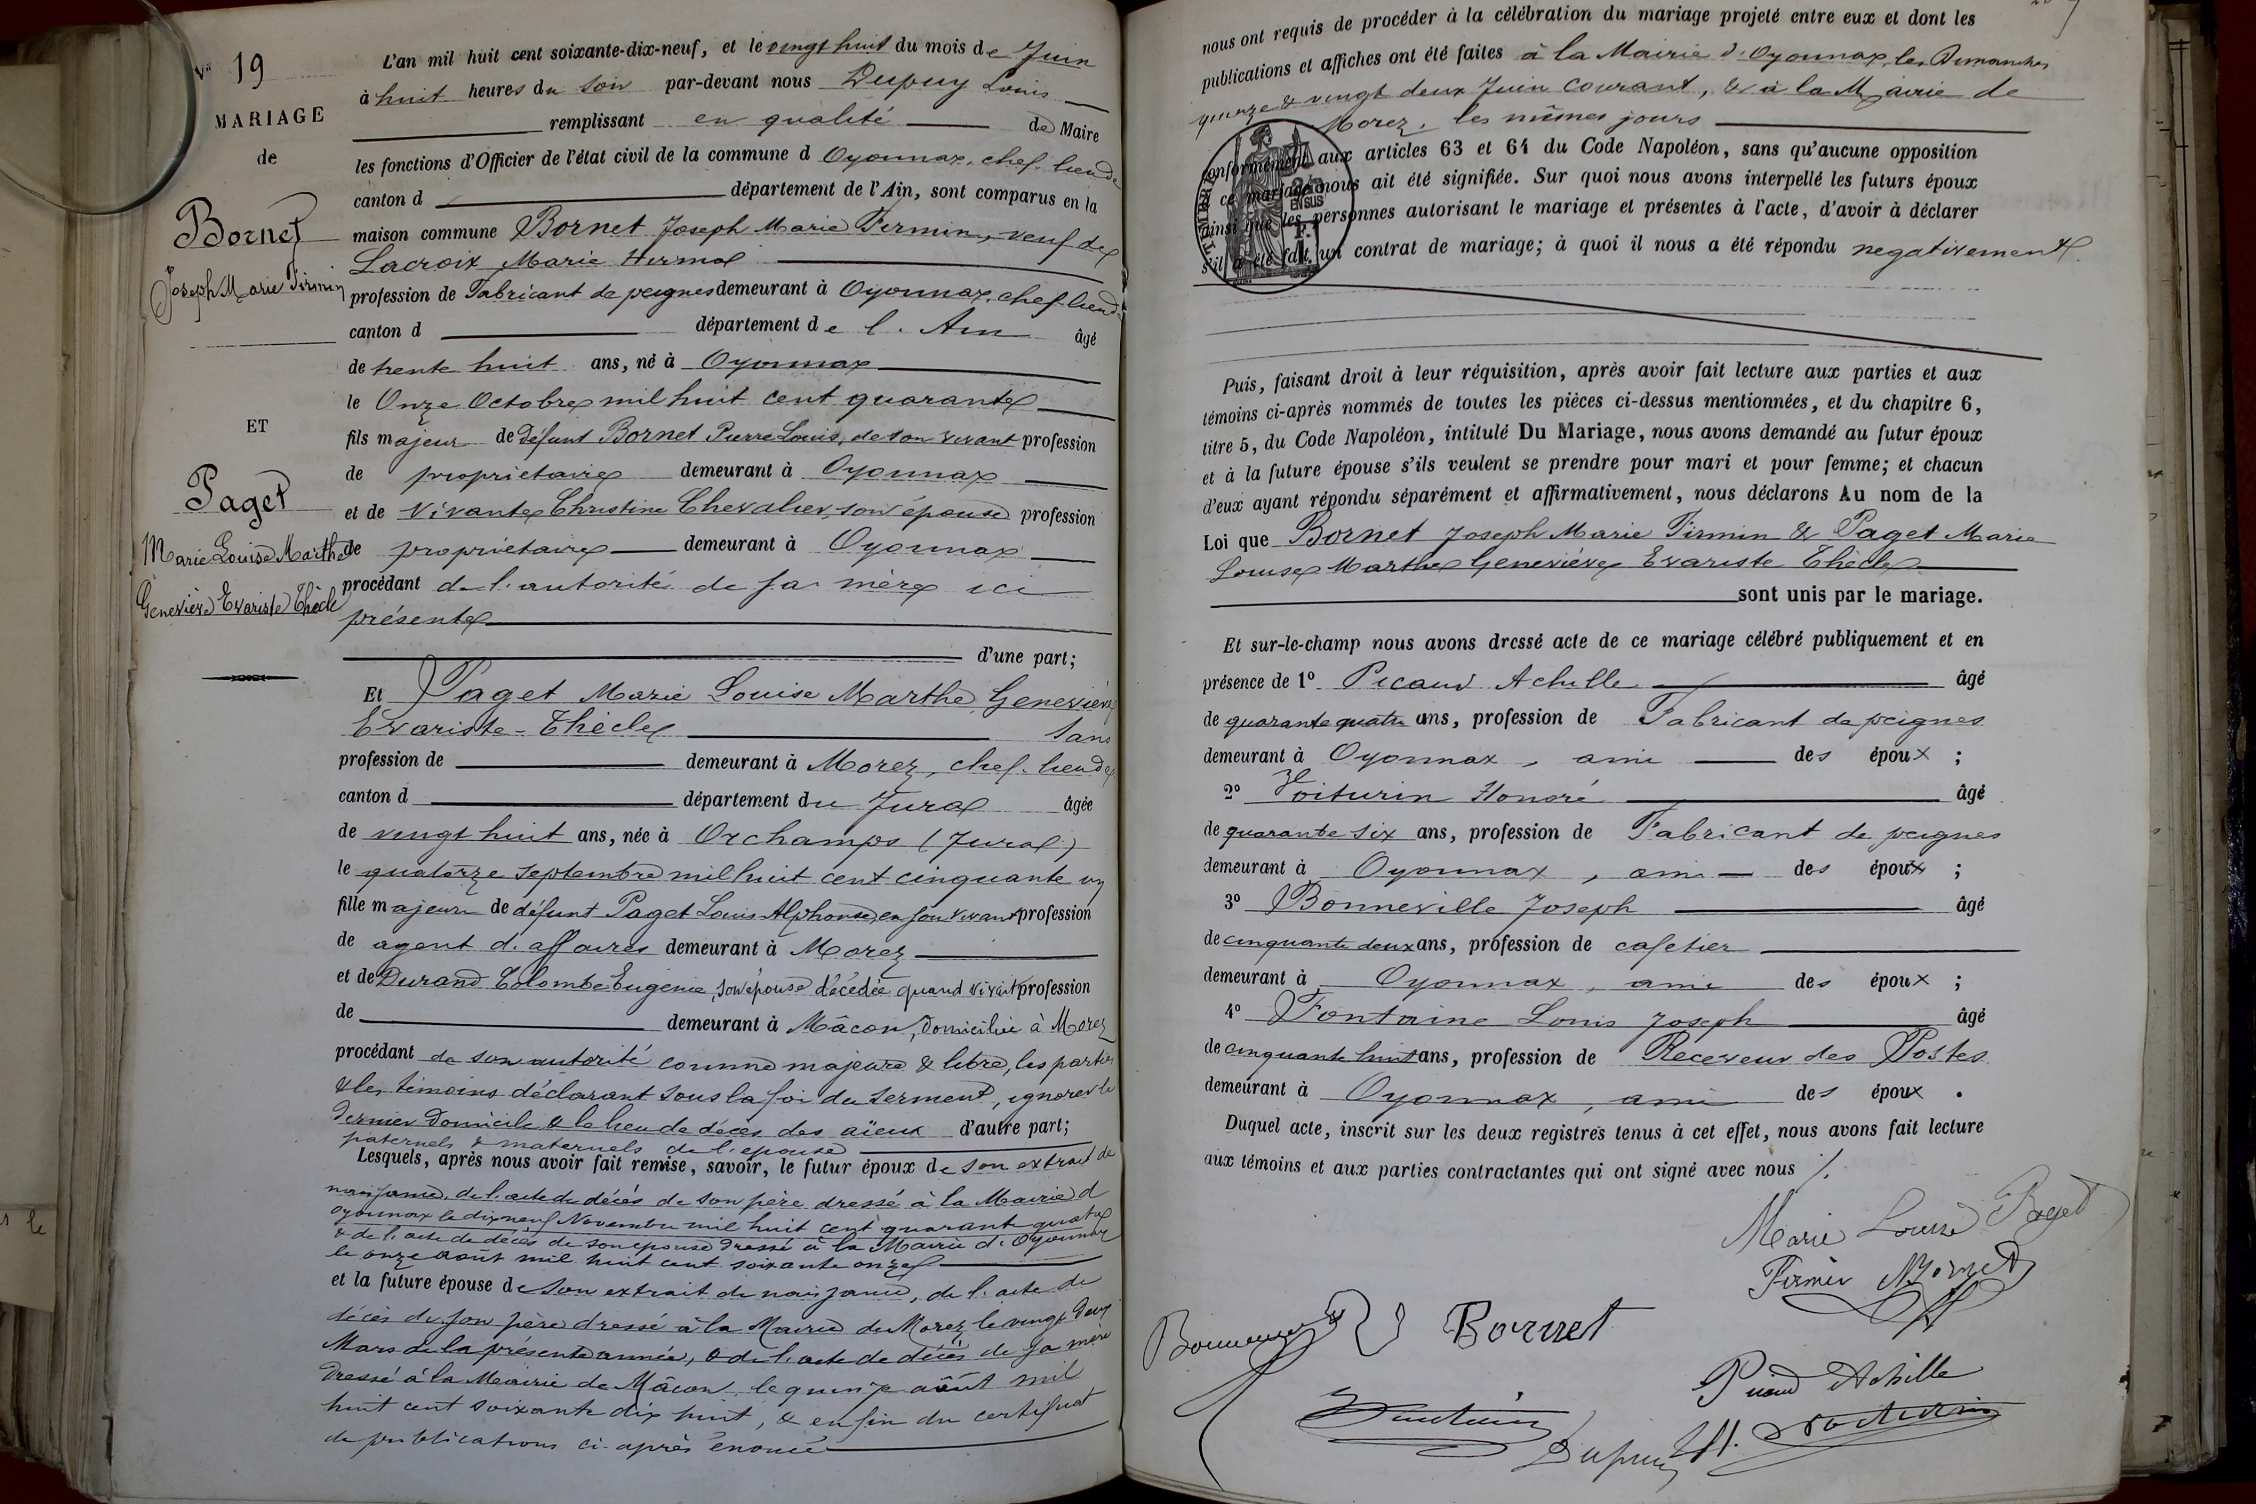 N° 19
MARIAGE
de
Bornet
Joseph Marie Firmin
ET
Paget
Marie Louise Marthe
Geneviève Evariste Thècle
L'an mil huit cent soixante-dix-neuf, et le vingt huit du mois de Juin
à huit heures du Soir par-devant nous Dupuy Louis
remplissant en qualité de Maire
les fonctions d'Officier de l'état civil de la commune d Oyonnax, chef-lieu de
canton d département de l'Ain, sont comparus en la
maison commune Bornet Joseph Marie Firmin, veuf de
Lacroix Marie
profession de Fabricant de peignes demeurant à Oyonnax, chef-lieu de
canton d département de l'Ain âgé
de trente huit ans, né à Oyonnax
le Onze Octobre mil huit cent quarante
fils majeur de défunt Bornet Pierre Louis, de son vivant profession
de propriétaire demeurant à Oyonnax
et de vivante Christine Chevalier, son épouse profession
de propriétaire demeurant à Oyonnax
procédant de l'autorité de sa mère ici
présente
d'une part;
Et Paget Marie Louise Marthe Geneviève
Evariste-Thècle Sans
profession de demeurant à Morez, chef-lieu de
canton d département du Jura âgée
de vingt huit ans, née à Orchamps (Jura)
le quatorze Septembre mil huit cent cinquante un
fille majeure de défunt Paget Louis Alphonse, en son vivant profession
de agent d'affaires demeurant à Morez
et de Durand Colombe Eugénie, son épouse décédée quand vivait profession
de demeurant à Mâcon, domiciliée à Morez
procédant de son autorité comme majeure & libre, les parties
& les témoins déclarant sous la foi du serment, ignorer le
dernier domicile & le lieu de décès des aïeux d'autre part;
paternels & maternels de l'épouse
Lesquels, après nous avoir fait remise, savoir, le futur époux de son extrait de
naissance, de l'acte de décès de son père dressé à la Mairie d
oyonnax le dix neuf Novembre mil huit cent quarante quatre
& de l'acte de décès de son épouse dressé à la Mairie d'Oyonnax
le onze août mil huit cent soixante onze
et la future épouse de son extrait de naissance, de l'acte de
décès de son père dressé à la Mairie de Morez le vingt deux
Mars de la présente année, & de l'acte de décès de sa mère
dressé à la Mairie de Mâcon, le quinze août mil
huit cent soixante dix huit, & enfin du certificat
de publications ci-après énoncé
nous ont requis de procéder à la célébration du mariage projeté entre eux et dont les
publications et affiches ont été faites à la Mairie d'Oyonnax, les Dimanches
quinze & vingt deux Juin courant, & à la Mairie de
Morez, les mêmes jours
conformément aux articles 63 et 64 du Code Napoléon, sans qu'aucune opposition
à ce mariage nous ait été signifiée. Sur quoi nous avons interpellé les futurs époux
ainsi que les personnes autorisant le mariage et présentes à l'acte, d'avoir à déclarer
s'il a été fait un contrat de mariage; à quoi il nous a été répondu negativement
TIMBRE
EN SUS
Puis, faisant droit à leur réquisition, après avoir fait lecture aux parties et aux
témoins ci-après nommés de toutes les pièces ci-dessus mentionnées, et du chapitre 6,
titre 5, du Code Napoléon, intitulé Du Mariage, nous avons demandé au futur époux
et à la future épouse s'ils veulent se prendre pour mari et pour femme; et chacun
d'eux ayant répondu séparément et affirmativement, nous déclarons Au nom de la
Loi que Bornet Joseph Marie Firmin & Paget Marie
Louise Marthe Geneviève Evariste Thècle
sont unis par le mariage.
Et sur-le-champ nous avons dressé acte de ce mariage célébré publiquement et en
présence de 1° Picaud Achille âgé
de quarante quatre ans, profession de Fabricant de peignes
demeurant à Oyonnax, ami des époux ;
2° Voiturin Honoré âgé
de quarante six ans, profession de Fabricant de peignes
demeurant à Oyonnax, ami des époux ;
3° Bonneville Joseph âgé
de cinquante deux ans, profession de cafetier
demeurant à Oyonnax, ami des époux ;
4° Fontaine Louis Joseph âgé
de cinquante huit ans, profession de Receveur des Postes
demeurant à Oyonnax, ami des époux .
Duquel acte, inscrit sur les deux registres tenus à cet effet, nous avons fait lecture
aux témoins et aux parties contractantes qui ont signé avec nous
Marie Louise Paget
Firmin Bornet
Bonneville Bornet
Picaud Achille
Fontaine
Dupuy H. Voiturin